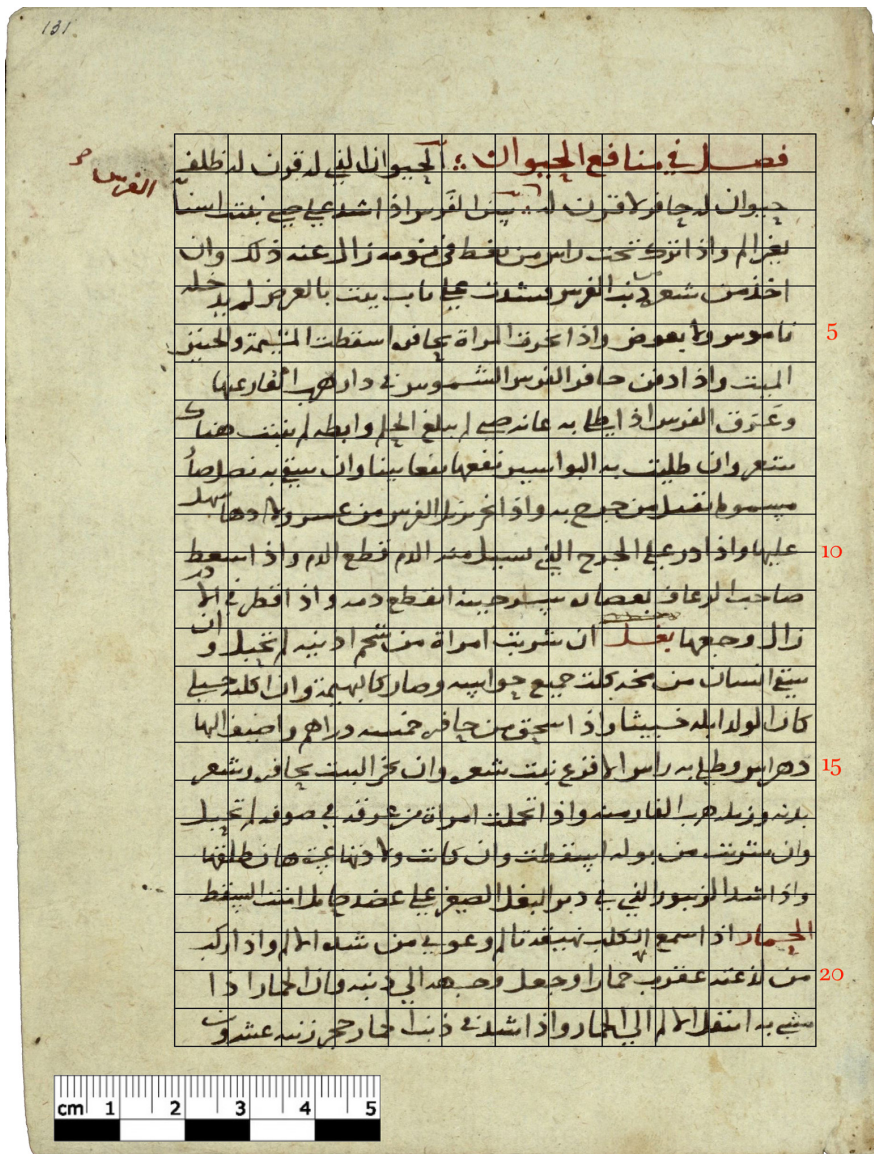 131
فصل في منافع الحيوان الحيوان الذي له قرون له ظلف
الفرس
حيوان له حافر لا قرون له الفرس اذا شد على صبي نبتت اسنا
بغير الم واذا ترك تحت راس من يغط في نومه زال عنه ذلك وان
اخذ من شعر ذنب الفرس وشدت على باب بيت بالعرض لم يدخله
5
ناموس ولا بعوض واذا بخرت المراة بحافره اسقطت المشيمة والجنين
الميت واذا دفن حافر الفرس الشموس في دار هرب الفار عنها
وعرق الفرس اذا طلي به عانة صبي لم يبلغ الحلم وابطه لم ينبت هناك
شعر وان طليت به البواسير نفعها نفعا بينا وان سقي به نصل صا
مسموما تقتل من جرح به واذا بخر بزبل الفرس من عسر ولادها سهل
10
عليها واذا ذر على الجرح الذي يسيل منه الدم قطع الدم واذا اسعط
صاحب الرعاف بعصارة حينه انقطع دمه واذا قطر في الاذن
زال وجعها بغل ان شربت امراة من شحم اذنيه لم تحبل وان
سقي انسان من مخه بكلت جميع حواسه وصار كالبهيمة وان اكلته حبلى
كان الولد ابله خبيثا واذا اسحق من حافره خمسة دراهم واضيف اليها
15
دهن اس وطلي به راس الاقرع نبت شعره وان بخر البيت بحافره وشعر
بدنه وزبله هرب الفار منه واذا تحملت امراة من عرقه في صوفة لم تحبل
وان شربت من بوله اسقطت وان كانت ولادتها هان طلقها
واذا شد الزنبور الذي في دبر البغل الصغير على عضد حامل امنت السقط
الحمار اذا سمع الكلب نهيقه تالم وعوى من شدة الالم واذا ركب
20
من لدغته عقرب حمارا وجعل وجهه الى ذنبه فان الحمار اذا
مشي به انتقل الالم الى الحمار واذا شد في ذنب الحمار حجر زنته عشرون
cm 1 2 3 4 5